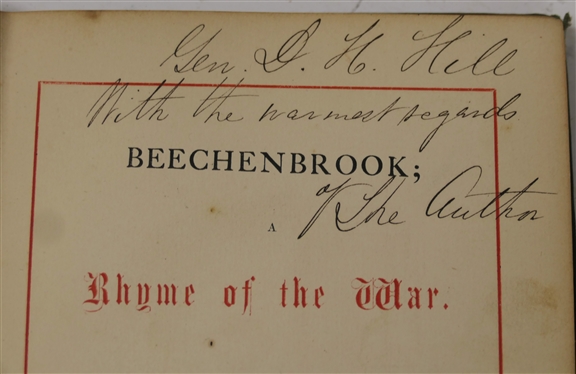 Gen. D. H. Hill
With the warmest regards
BEECHENBROOK;
of the Author
A
Rhyme of the War.